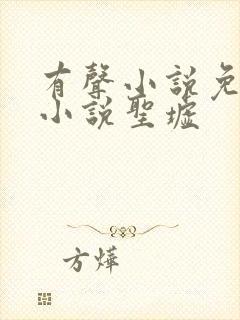 有聲小說免
小說聖墟
方燁